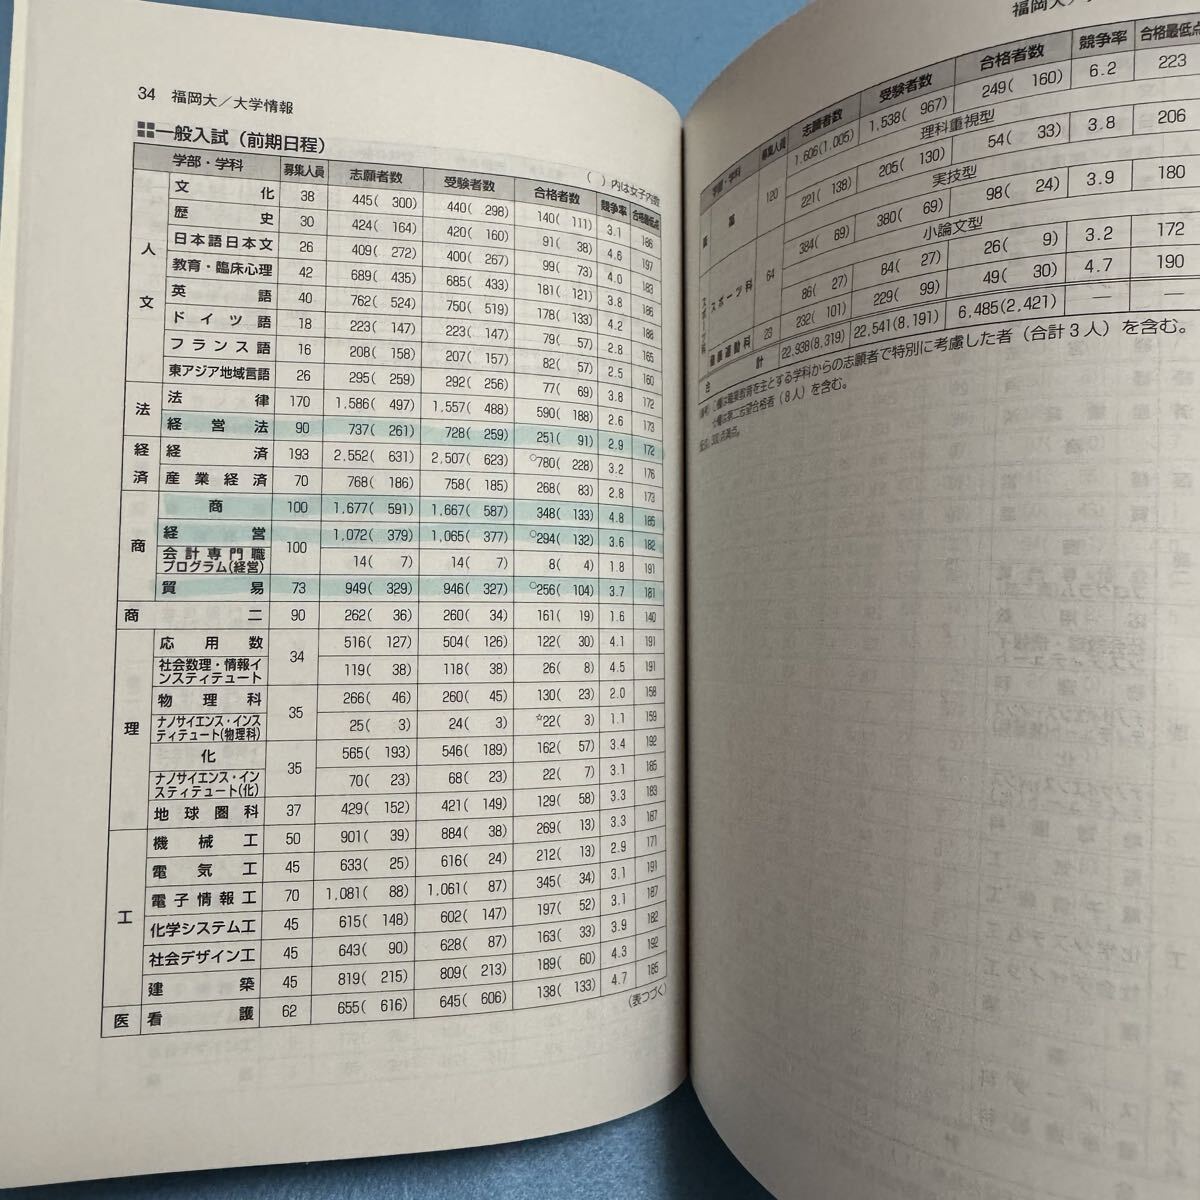 34 福岡大／大学情報
一般入試（前期日程）
（ ）内は女子内数
学部・学科 募集人員 志願者数 受験者数 合格者数 競争率 合格最低点
人文
文化 38 445( 300) 440( 298) 140( 111) 3.1 186
歴史 30 424( 164) 420( 160) 91( 38) 4.6 197
日本語日本文 26 409( 272) 400( 267) 99( 73) 4.0 183
教育・臨床心理 42 689( 435) 685( 433) 181( 121) 3.8 186
英語 40 762( 524) 750( 519) 178( 133) 4.2 188
ドイツ語 18 223( 147) 223( 147) 79( 57) 2.8 165
フランス語 16 208( 158) 207( 157) 82( 57) 2.5 160
東アジア地域言語 26 295( 259) 292( 256) 77( 69) 3.8 172
法
法律 170 1,586( 497) 1,557( 488) 590( 188) 2.6 173
経営法 90 737( 261) 728( 259) 251( 91) 2.9 172
経済
経済 193 2,552( 631) 2,507( 623) ○780( 228) 3.2 176
産業経済 70 768( 186) 758( 185) 268( 83) 2.8 173
商
商 100 1,677( 591) 1,667( 587) 348( 133) 4.8 186
経営 100 1,072( 379) 1,065( 377) ○294( 132) 3.6 182
会計専門職プログラム(経営) 14( 7) 14( 7) 8( 4) 1.8 191
貿易 73 949( 329) 946( 327) ○256( 104) 3.7 181
商二 90 262( 36) 260( 34) 161( 19) 1.6 140
理
応用数 34 516( 127) 504( 126) 122( 30) 4.1 191
社会数理・情報インスティテュート 119( 38) 118( 38) 26( 8) 4.5 191
物理科 35 266( 46) 260( 45) 130( 23) 2.0 158
ナノサイエンス・インスティテュート(物理科) 25( 3) 24( 3) ☆22( 3) 1.1 159
化 35 565( 193) 546( 189) 162( 57) 3.4 192
ナノサイエンス・インスティテュート(化) 70( 23) 68( 23) 22( 7) 3.1 185
地球圏科 37 429( 152) 421( 149) 129( 58) 3.3 183
工
機械工 50 901( 39) 884( 38) 269( 13) 3.3 187
電気工 45 633( 25) 616( 24) 212( 13) 2.9 171
電子情報工 70 1,081( 88) 1,061( 87) 345( 34) 3.1 191
化学システム工 45 615( 148) 602( 147) 197( 52) 3.1 187
社会デザイン工 45 643( 90) 628( 87) 163( 33) 3.9 182
建築 45 819( 215) 809( 213) 189( 60) 4.3 192
医 看護 62 655( 616) 645( 606) 138( 133) 4.7 185
（表つづく）
福岡大／
学部・学科 募集人員 志願者数 受験者数 合格者数 競争率 合格最低点
薬 120 1,606(1,005) 1,538( 967) 249( 160) 6.2 223
理科重視型
221( 138) 205( 130) 54( 33) 3.8 206
スポーツ科
スポーツ科 64
実技型
384( 69) 380( 69) 98( 24) 3.9 180
小論文型
86( 27) 84( 27) 26( 9) 3.2 172
健康運動科 23 232( 101) 229( 99) 49( 30) 4.7 190
合計 22,938(8,319) 22,541(8,191) 6,485(2,421) — —
(備考) ○欄は職業教育を主とする学科からの志願者で特別に考慮した者（合計3人）を含む。
☆欄は第二志望合格者（8人）を含む。